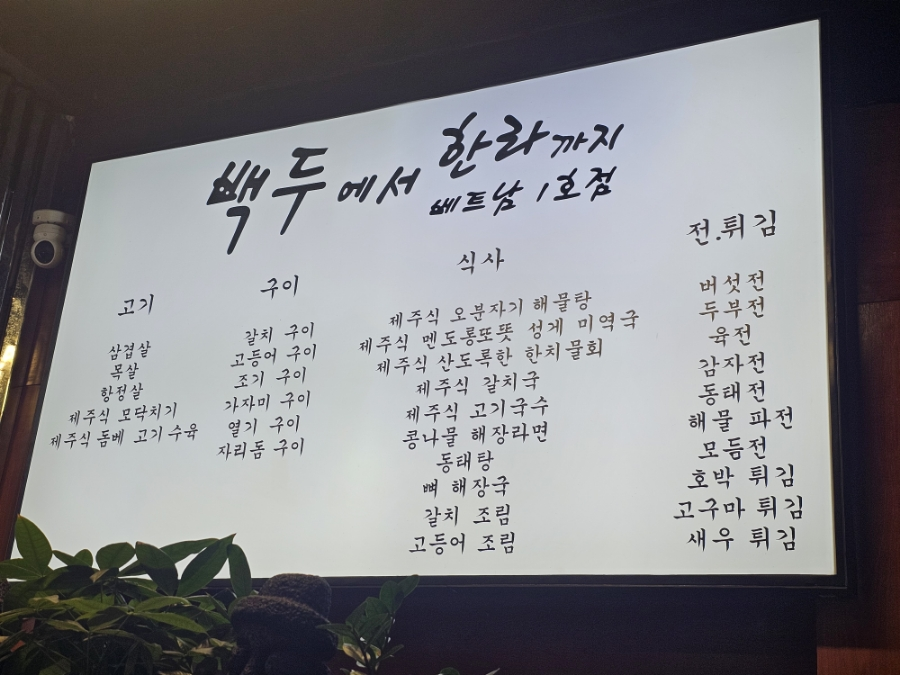 백두에서 한라까지
베트남 1호점
고기
삼겹살
목살
항정살
제주식 모닥치기
제주식 돔베 고기 수육
구이
갈치 구이
고등어 구이
조기 구이
가자미 구이
열기 구이
자리돔 구이
식사
제주식 오분자기 해물탕
제주식 멘도롱또똣 성게 미역국
제주식 산도록한 한치물회
제주식 갈치국
제주식 고기국수
콩나물 해장라면
동태탕
뼈 해장국
갈치 조림
고등어 조림
전.튀김
버섯전
두부전
육전
감자전
동태전
해물 파전
모듬전
호박 튀김
고구마 튀김
새우 튀김